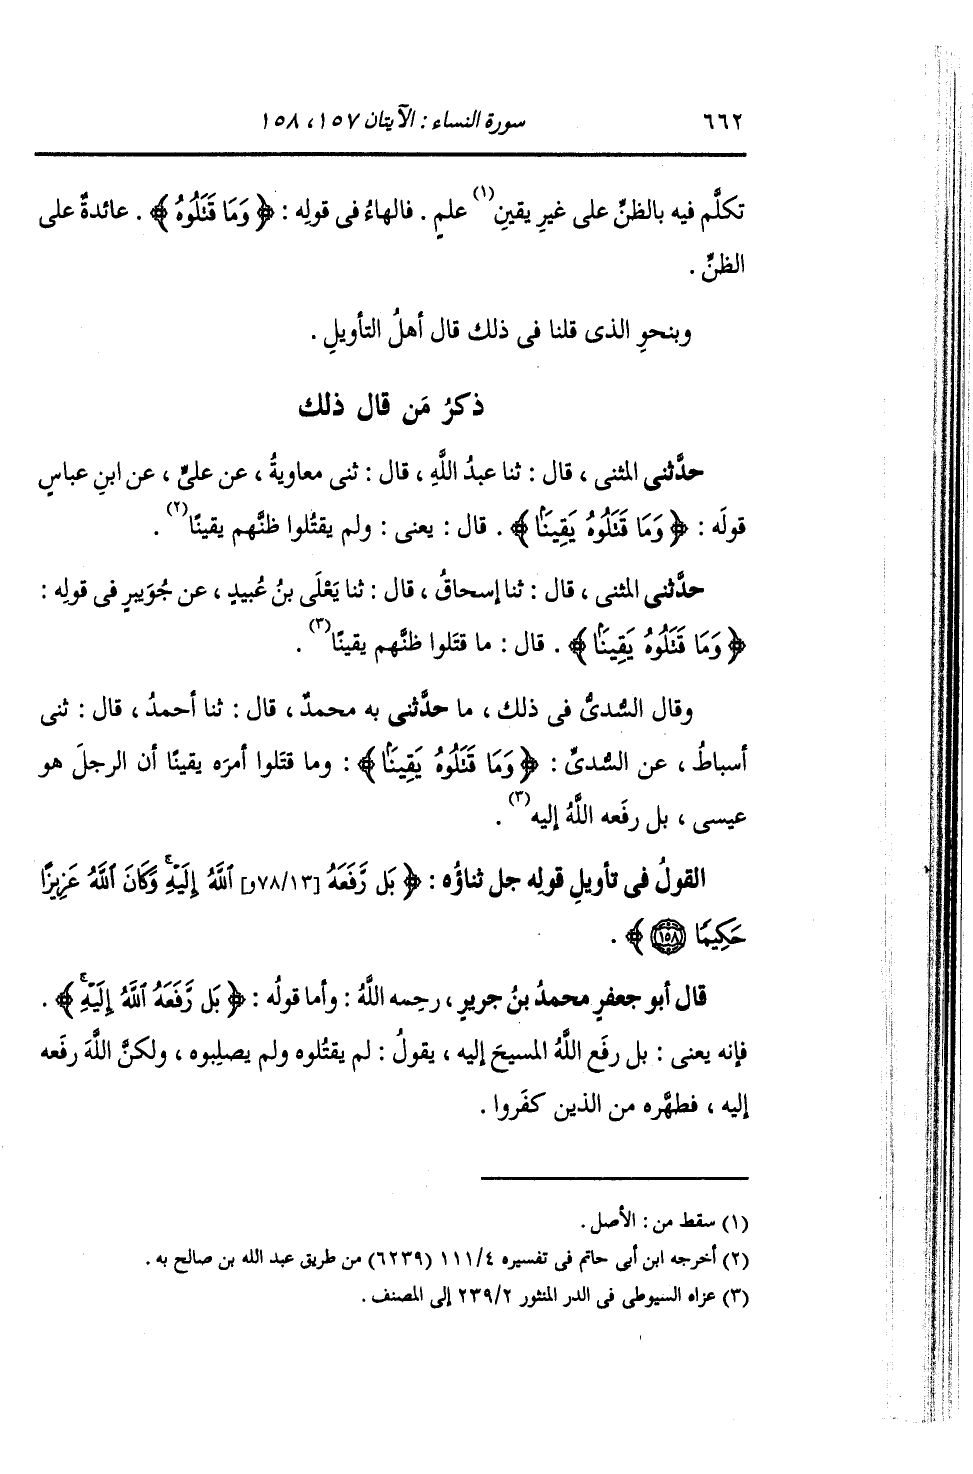 ٦٦٢ سورة النساء : الآيتان ١٥٧، ١٥٨
تكلَّم فيه بالظنِّ على غيرِ يقينِ(١) علمٍ . فالهاءُ فى قولِه : ﴿ وَمَا قَتَلُوهُ ﴾ . عائدةٌ على
الظنِّ .
وبنحوِ الذى قلنا فى ذلك قال أهلُ التأويلِ .
ذكرُ مَن قال ذلك
حدَّثنى المثنى ، قال : ثنا عبدُ اللَّهِ ، قال : ثنى معاويةُ ، عن علىٍّ ، عن ابنِ عباسٍ
قولَه : ﴿ وَمَا قَتَلُوهُ يَقِينًا ﴾ . قال : يعنى : ولم يقتُلوا ظنَّهم يقينًا(٢) .
حدَّثنى المثنى ، قال : ثنا إسحاقُ ، قال : ثنا يَعْلَى بنُ عُبيدٍ ، عن جُوَيبرٍ فى قولِه :
﴿ وَمَا قَتَلُوهُ يَقِينًا ﴾ . قال : ما قتَلوا ظنَّهم يقينًا(٣) .
وقال السُّدىُّ فى ذلك ، ما حدَّثنى به محمدٌ ، قال : ثنا أحمدُ ، قال : ثنى
أسباطُ ، عن السُّدىِّ : ﴿ وَمَا قَتَلُوهُ يَقِينًا ﴾ : وما قتَلوا أمرَه يقينًا أن الرجلَ هو
عيسى ، بل رفَعه اللَّهُ إليه(٣) .
القولُ فى تأويلِ قولِه جل ثناؤُه : ﴿ بَل رَّفَعَهُ [٧٨/١٣و] ٱللَّهُ إِلَيْهِ ۚ وَكَانَ ٱللَّهُ عَزِيزًا
حَكِيمًا ١٥٨ ﴾ .
قال أبو جعفرٍ محمدُ بنُ جريرٍ ، رحِمه اللَّهُ : وأما قولُه : ﴿ بَل رَّفَعَهُ ٱللَّهُ إِلَيْهِ ۚ ﴾ .
فإنه يعنى : بل رفَع اللَّهُ المسيحَ إليه ، يقولُ : لم يقتُلوه ولم يصلِبوه ، ولكنَّ اللَّهَ رفَعه
إليه ، فطهَّره من الذين كفَروا .
(١) سقط من : الأصل .
(٢) أخرجه ابن أبى حاتم فى تفسيره ١١١/٤ (٦٢٣٩) من طريق عبد الله بن صالح به .
(٣) عزاه السيوطى فى الدر المنثور ٢٣٩/٢ إلى المصنف .